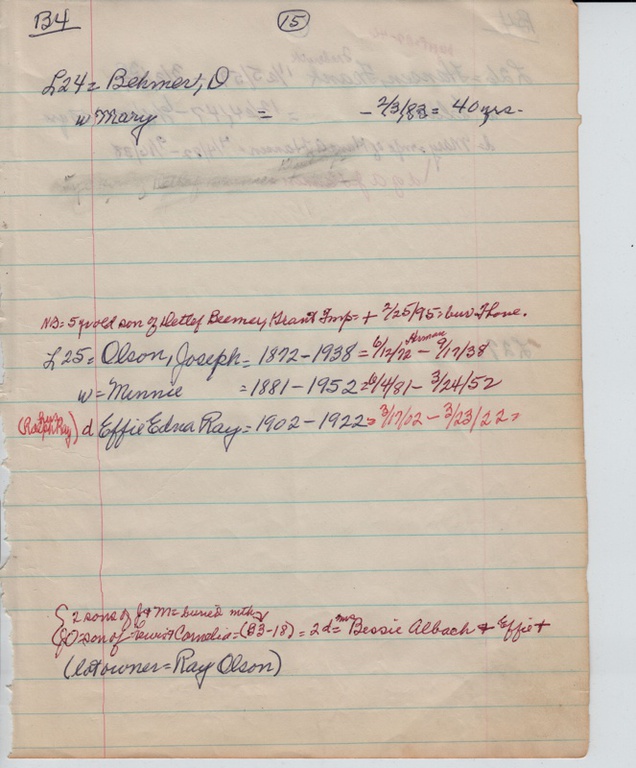 B4
15
L24 = Behmer, D
w Mary = - 2/3/83 = 40 yrs.
NB = 5 yr old son of Detlef Beemer, Grant Twp = + 2/25/95 = bur Ione.
L25 = Olson, Joseph = 1872 - 1938 = 6/12/72 - 9/17/38
w = Minnie = 1881 - 1952 = 6/4/81 - 3/24/52
(Ralph Ray) d Effie Edna Ray = 1902 - 1922 = 3/17/02 - 3/23/22 =
2 sons of J + M = buried
son of Cornelia = (B3-18) = 2d = mrs Bessie Albach + Effie +
(lot owner = Ray Olson)